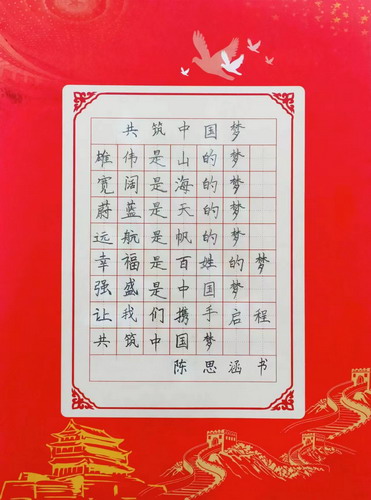 共筑中国梦
雄伟是山的梦
宽阔是海的梦
蔚蓝是天的梦
远航是帆的梦
幸福是百姓的梦
强盛是中国梦
让我们携手启程
共筑中国梦
陈思涵书